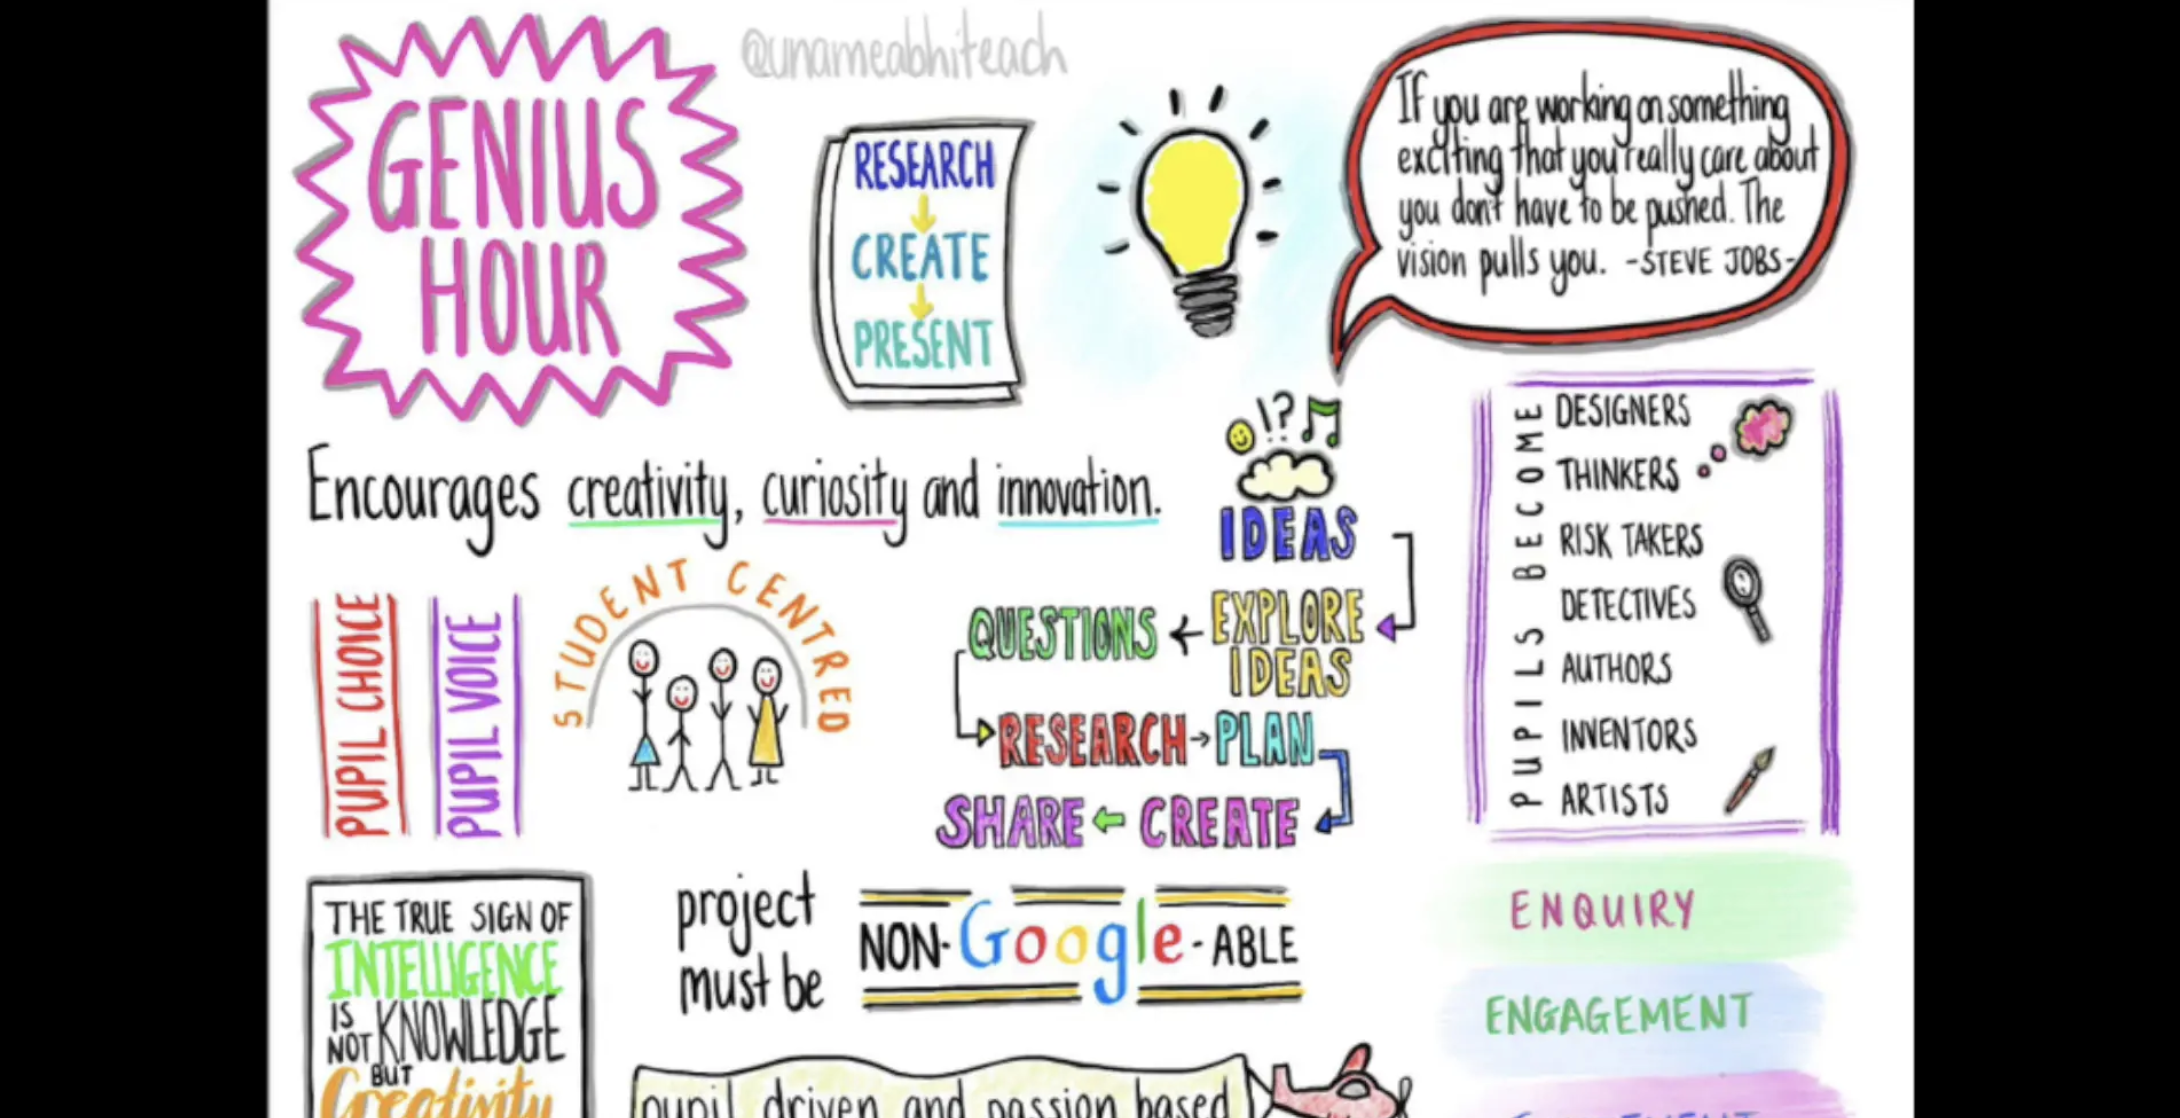 @unameabhiteach
GENIUS
HOUR
RESEARCH
CREATE
PRESENT
If you are working on something
exciting that you really care about
you don't have to be pushed. The
vision pulls you. -STEVE JOBS-
Encourages creativity, curiosity and innovation.
!?
IDEAS
EXPLORE
IDEAS
QUESTIONS
RESEARCH
PLAN
CREATE
SHARE
PUPILS BECOME
DESIGNERS
THINKERS
RISK TAKERS
DETECTIVES
AUTHORS
INVENTORS
ARTISTS
PUPIL CHOICE
PUPIL VOICE
STUDENT CENTRED
THE TRUE SIGN OF
INTELLIGENCE
IS
NOT KNOWLEDGE
BUT
Creativity
project
must be
NON-Google-ABLE
pupil driven and passion based
ENQUIRY
ENGAGEMENT